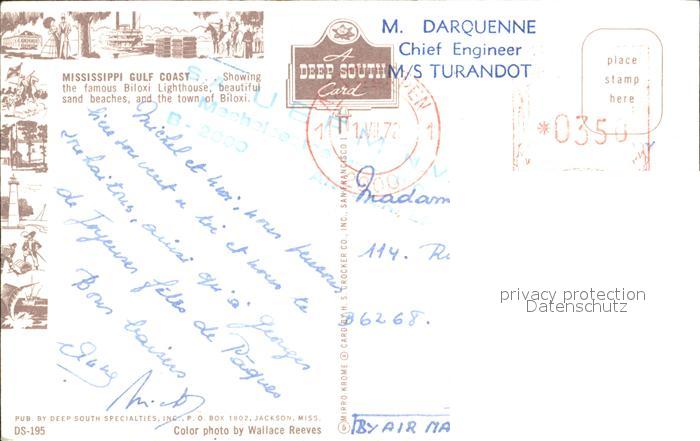 M. DARQUENNE
Chief Engineer
M/S TURANDOT
A
DEEP SOUTH
Card
place
stamp
here
*0350
MISSISSIPPI GULF COAST . . . Showing
the famous Biloxi Lighthouse, beautiful
sand beaches, and the town of Biloxi.
B. 2000
Michel et moi, nous pensons
bien souvent à toi et nous te
souhaitons, ainsi qu'à Georges
de Joyeuses fêtes de Pâques
Bons baisers
Madam
114. R
B6268.
BY AIR MA
privacy protection
Datenschutz
MIRRO-KROME ® CARD BY H. S. CROCKER CO., INC., SAN FRANCISCO 1
PUB. BY DEEP SOUTH SPECIALTIES, INC., P. O. BOX 1802, JACKSON, MISS.
DS-195
Color photo by Wallace Reeves